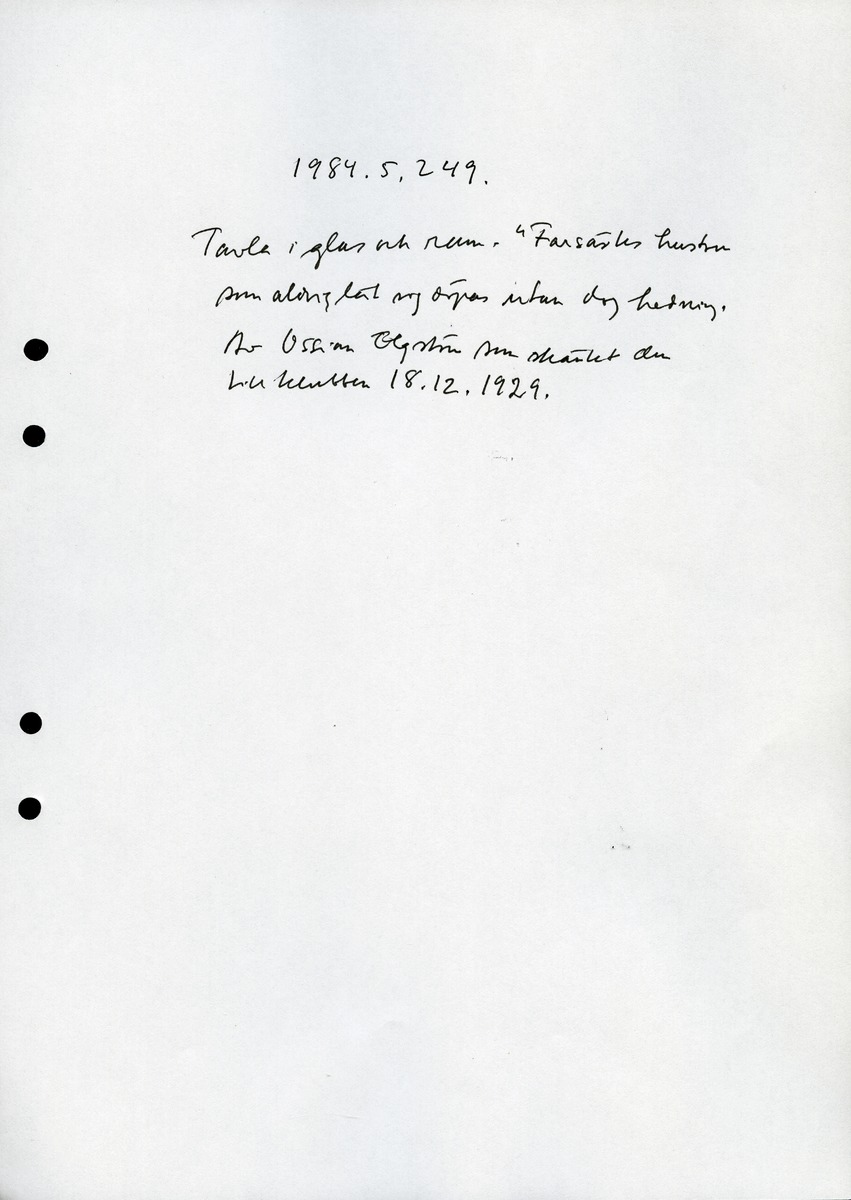 1984.5.249.
Tavla i glas och ram. "Farsàtes hustru
som aldrig lät sig döpas utan dog hedning.
Av Ossian Elgström som skänkt den
till klubben 18.12.1929.